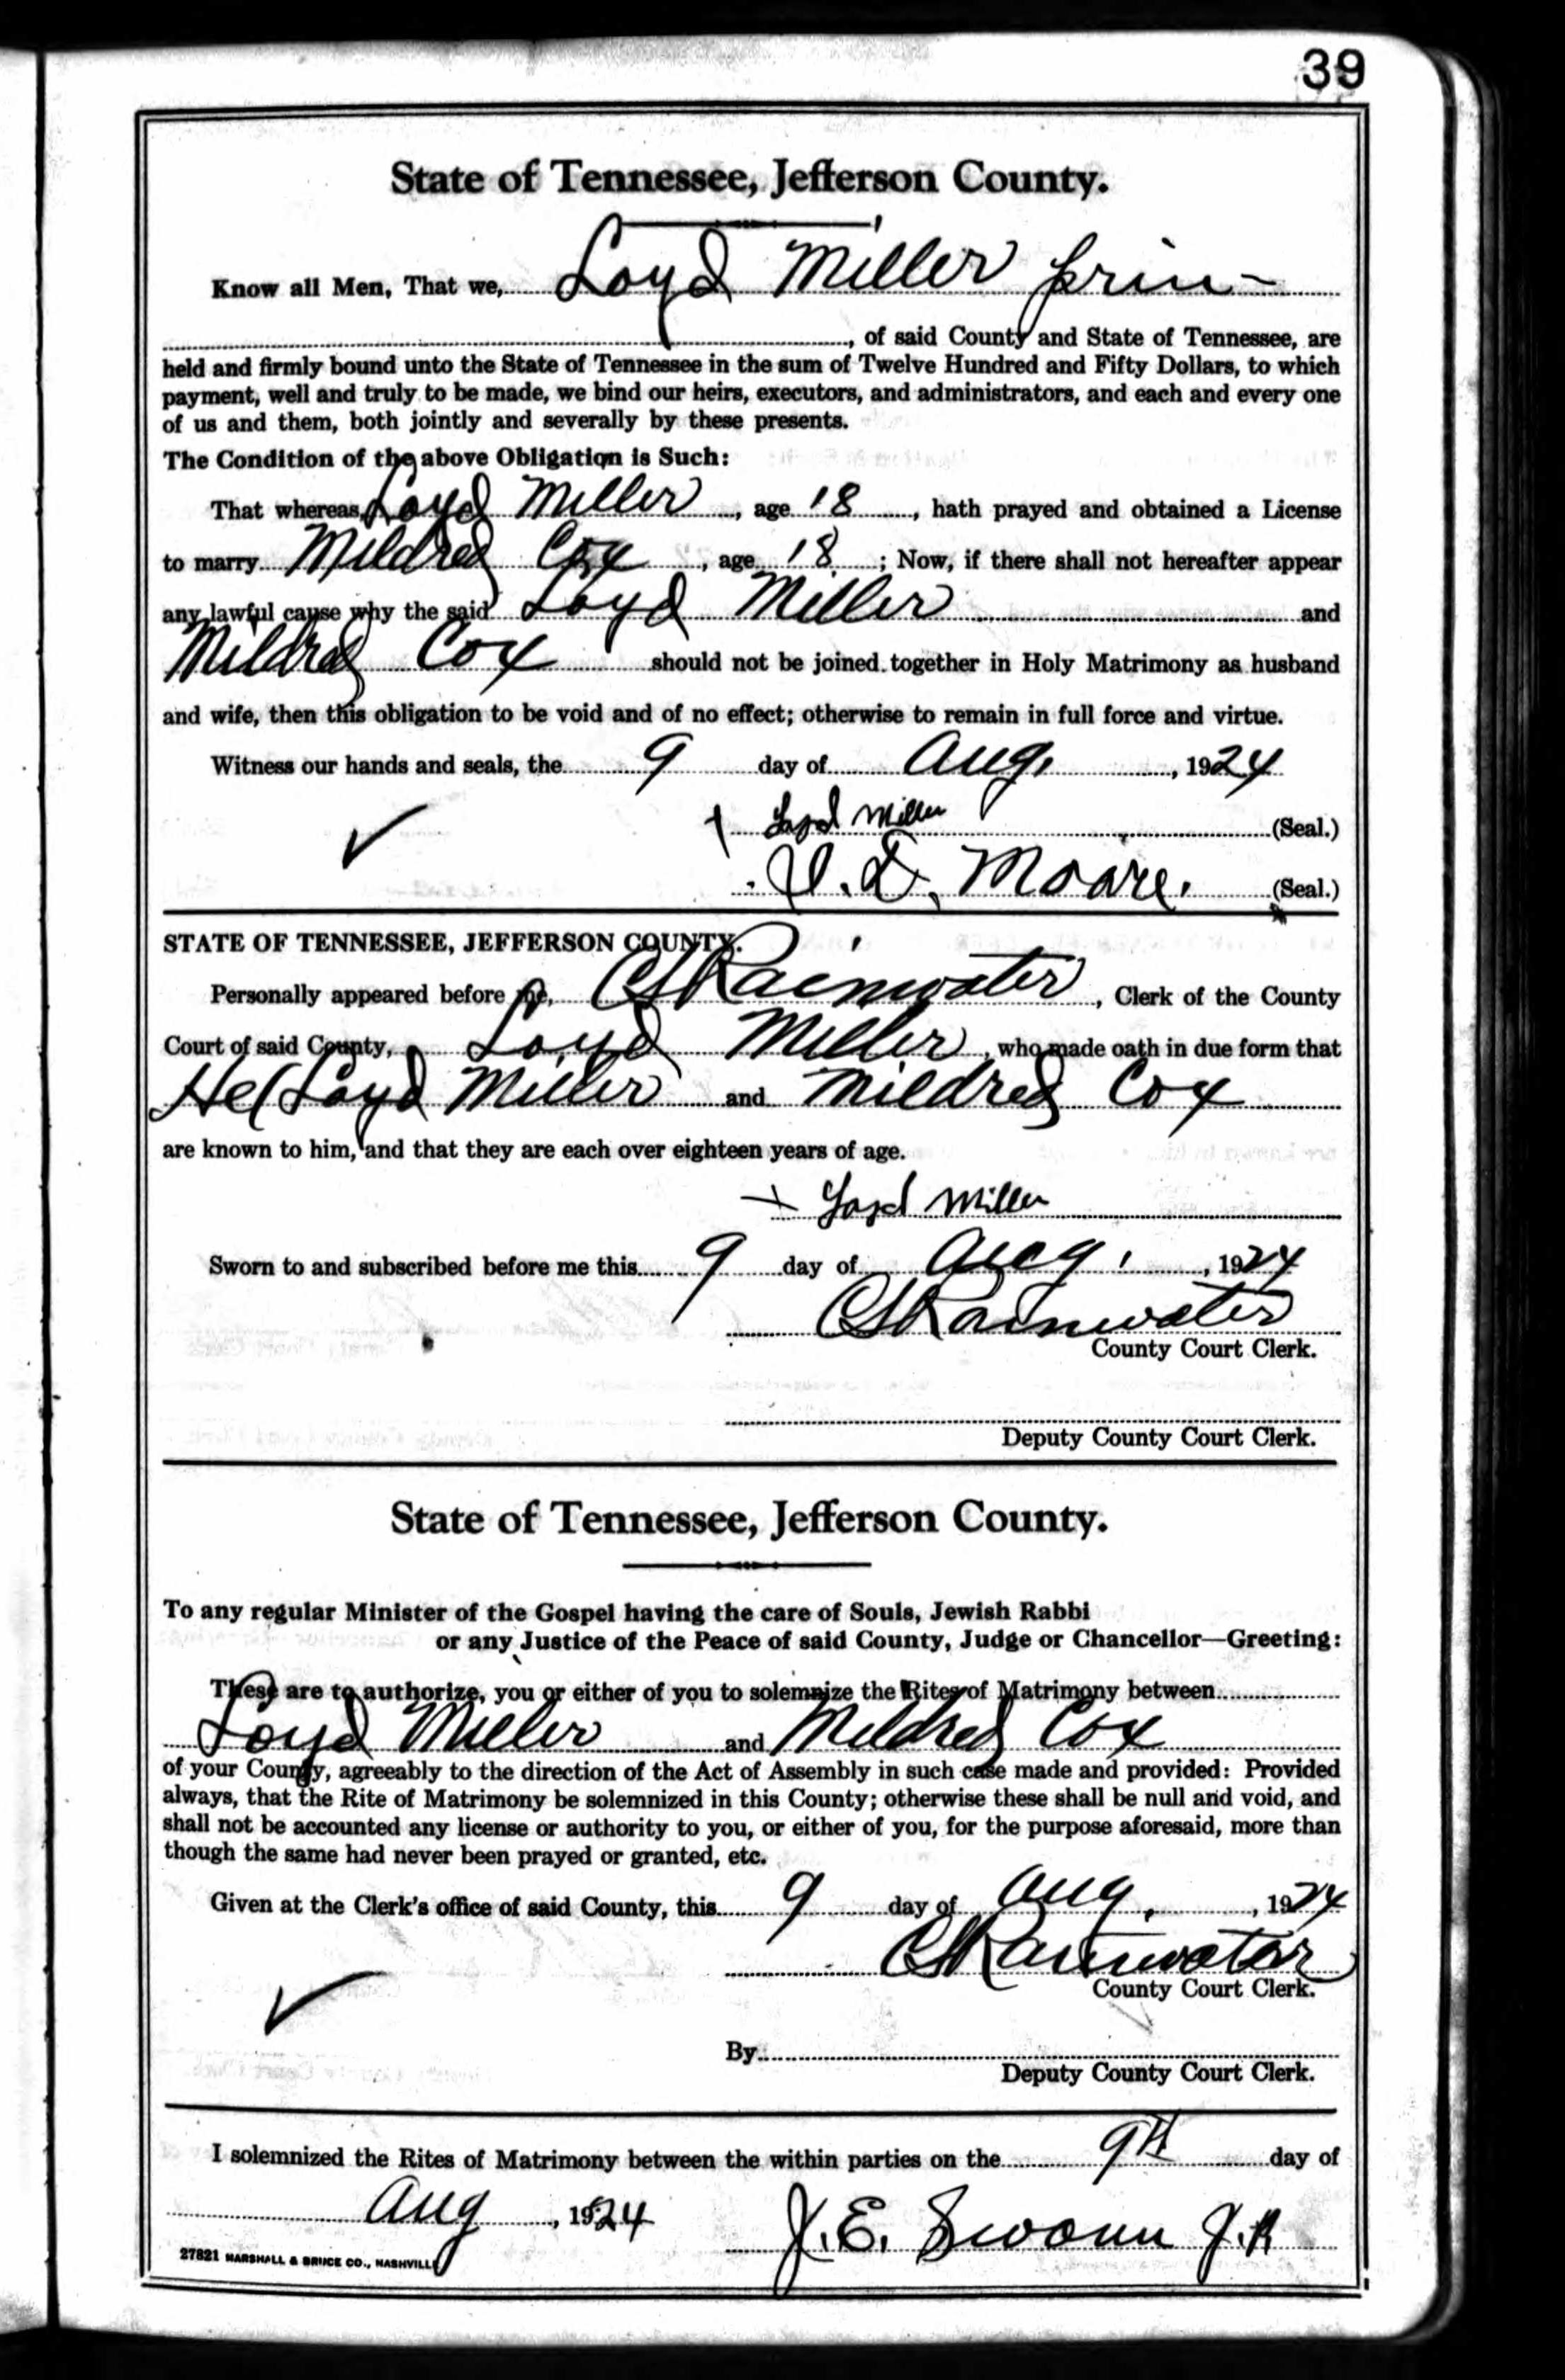 39
State of Tennessee, Jefferson County.
Know all Men, That we, Loyd Miller prin
, of said County and State of Tennessee, are
held and firmly bound unto the State of Tennessee in the sum of Twelve Hundred and Fifty Dollars, to which
payment, well and truly to be made, we bind our heirs, executors, and administrators, and each and every one
of us and them, both jointly and severally by these presents.
The Condition of the above Obligation is Such:
That whereas, Loyd Miller, age 18, hath prayed and obtained a License
to marry Mildred Cox, age 18; Now, if there shall not hereafter appear
any lawful cause why the said Loyd Miller and
Mildred Cox should not be joined together in Holy Matrimony as husband
and wife, then this obligation to be void and of no effect; otherwise to remain in full force and virtue.
Witness our hands and seals, the 9 day of Aug, 1924
Loyd Miller (Seal.)
D. Moore. (Seal.)
STATE OF TENNESSEE, JEFFERSON COUNTY.
Personally appeared before me, CS Rainwater, Clerk of the County
Court of said County, Loyd Miller, who made oath in due form that
He (Loyd Miller and Mildred Cox
are known to him, and that they are each over eighteen years of age.
Loyd Miller
Sworn to and subscribed before me this 9 day of Aug, 1924
CS Rainwater
County Court Clerk.
Deputy County Court Clerk.
State of Tennessee, Jefferson County.
To any regular Minister of the Gospel having the care of Souls, Jewish Rabbi
or any Justice of the Peace of said County, Judge or Chancellor—Greeting:
These are to authorize, you or either of you to solemnize the Rites of Matrimony between
Loyd Miller and Mildred Cox
of your County, agreeably to the direction of the Act of Assembly in such case made and provided: Provided
always, that the Rite of Matrimony be solemnized in this County; otherwise these shall be null and void, and
shall not be accounted any license or authority to you, or either of you, for the purpose aforesaid, more than
though the same had never been prayed or granted, etc.
Given at the Clerk's office of said County, this 9 day of Aug, 1924
CS Rainwater
County Court Clerk.
By
Deputy County Court Clerk.
I solemnized the Rites of Matrimony between the within parties on the 9th day of
Aug, 1924 J. E. Swann
27821 MARSHALL & BRUCE CO., NASHVILLE